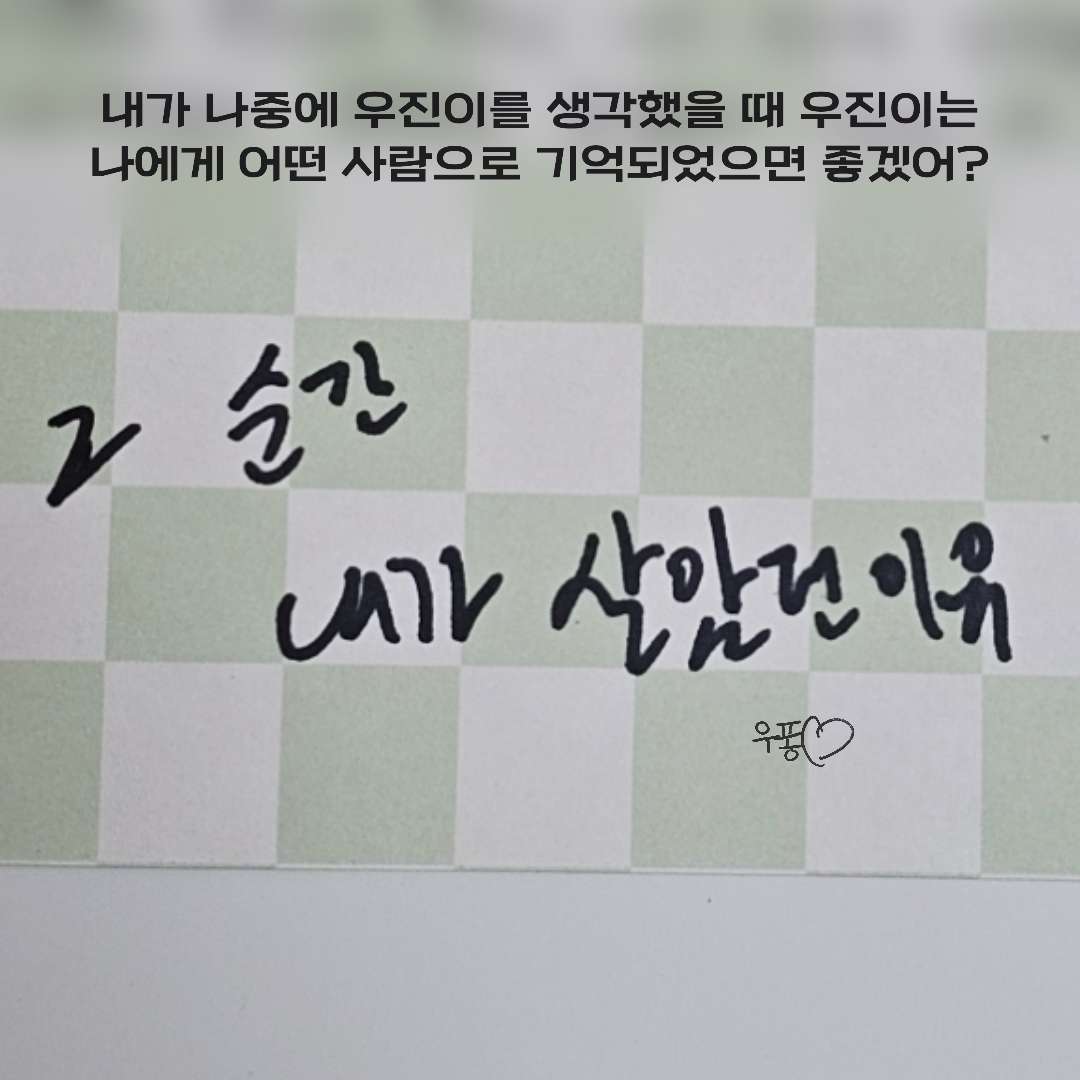 내가 나중에 우진이를 생각했을 때 우진이는
나에게 어떤 사람으로 기억되었으면 좋겠어?
그 순간
내가 살았던 이유
우풍♡